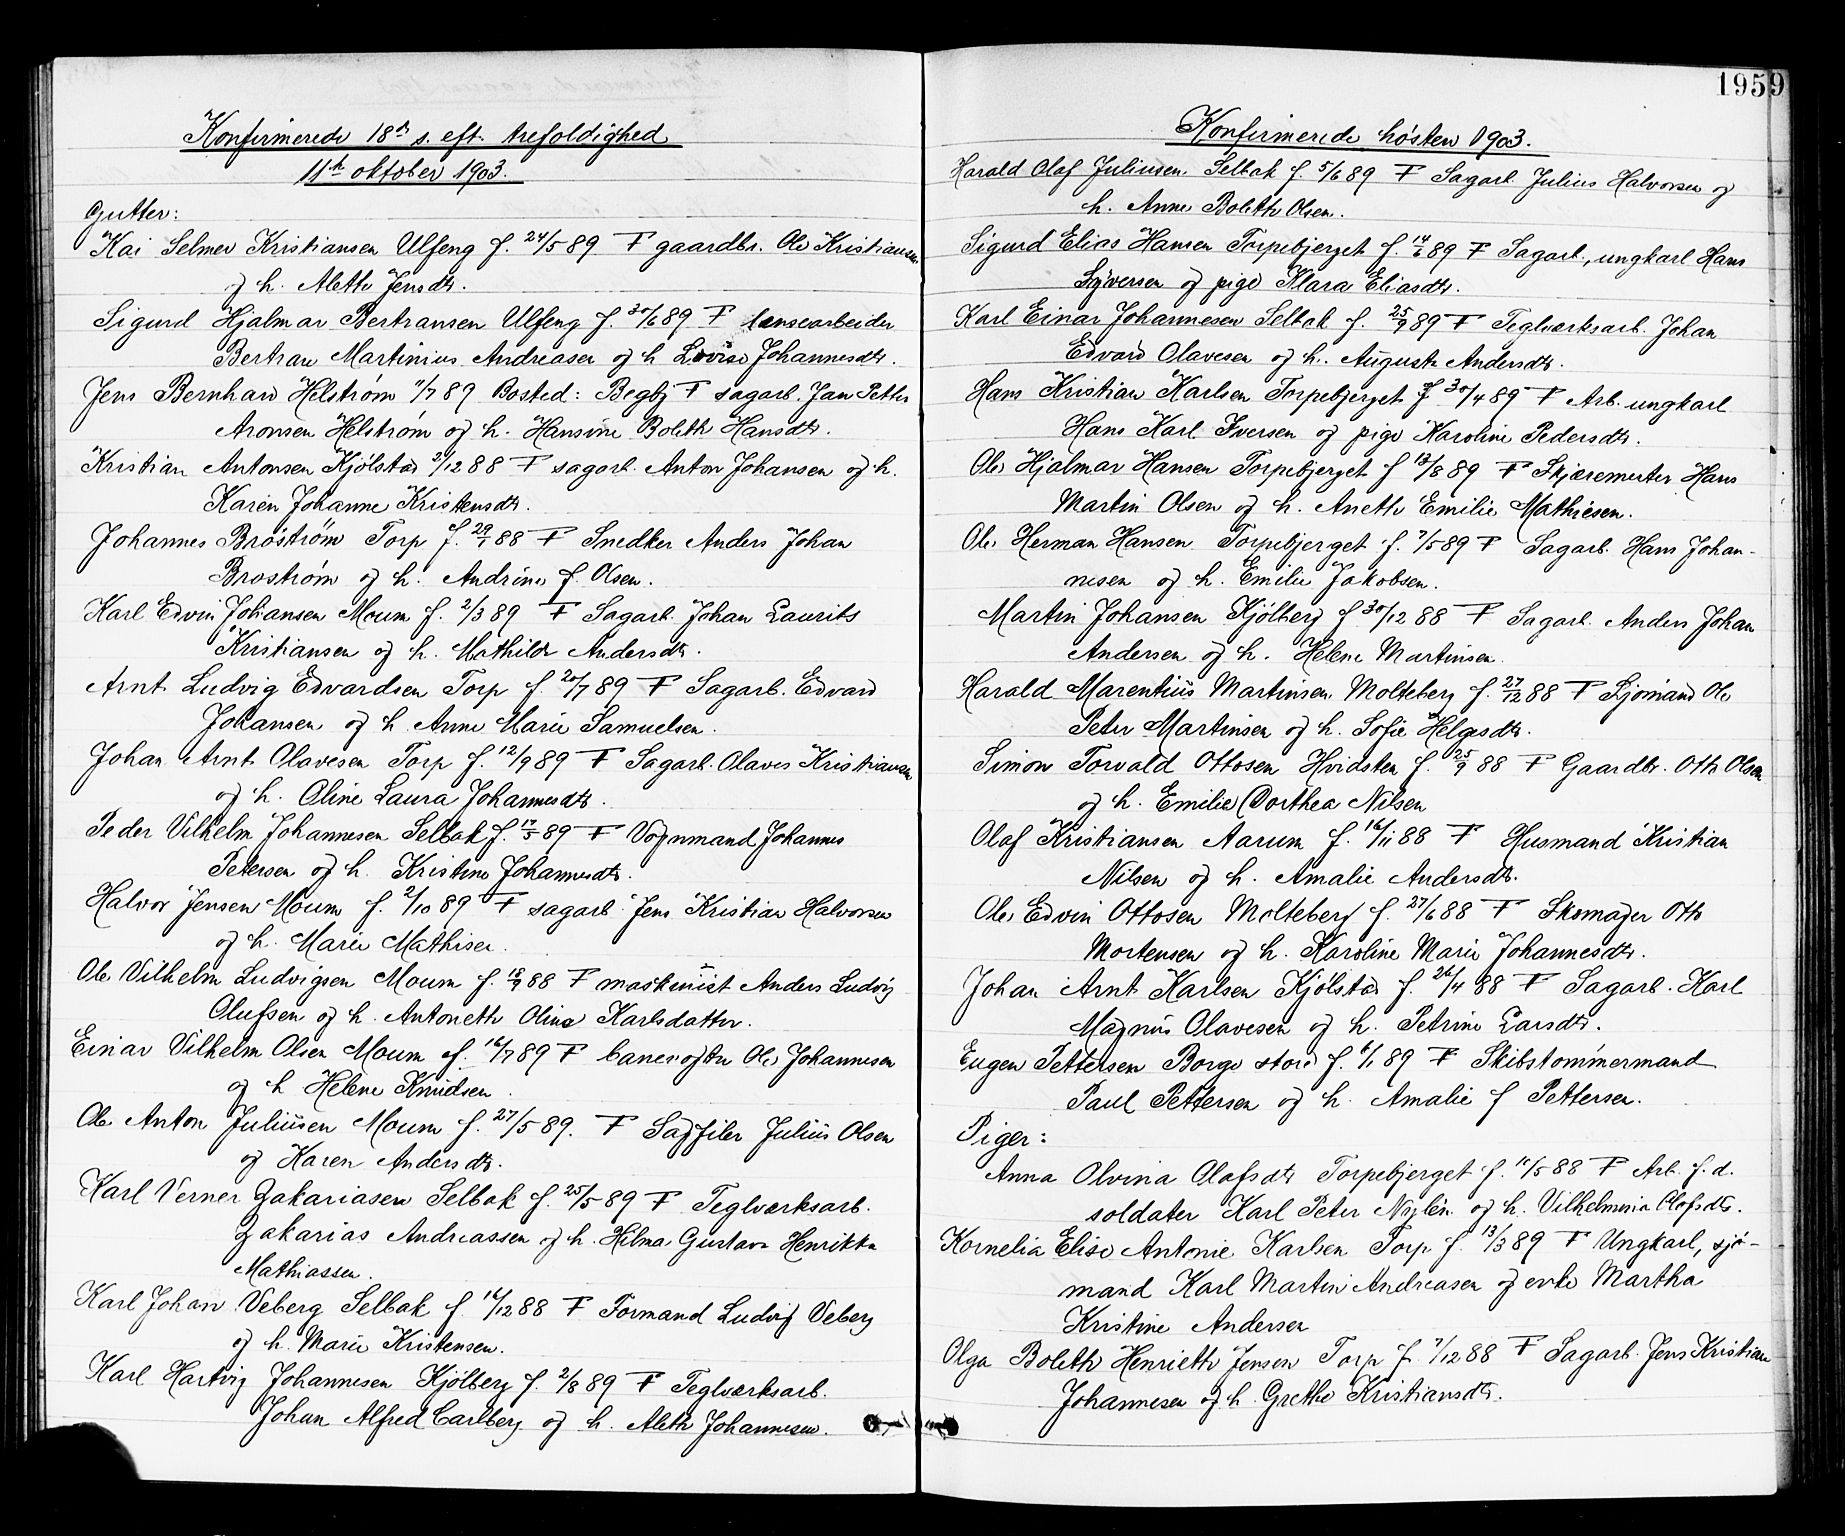 Konfirmerede 18de s. eft. trefoldighed
11te oktober 1903.
Gutter:
Kai Selmer Kristiansen Ulfeng f. 24/5 89 F gaardbr. Ole Kristiansen
og h. Alette Jensdtr.
Sigurd Hjalmar Bertransen Ulfeng f. 30/6 89 F lensearbeider
Bertran Martinius Andreasen og h Lovise Johannesdtr.
Jens Bernhard Helstrøm 7/7 89 Bosted: Begby F sagarb. Jan Petter
Aronsen Helstrøm og h. Hansine Boleth Hansdtr.
Kristian Antonsen Kjølstad 2/12 88 F sagarb. Anton Johansen og h.
Karen Johanne Kristensdtr.
Johannes Broström Torp f. 29/7 88 F Snedker Anders Johan
Broström og h. Andrine f. Olsen.
Karl Edvin Johansen Moum f. 2/3 89 F Sagarb. Johan Laurits
Kristiansen og h. Mathilde Andersdtr.
Arnt Ludvig Edvardsen Torp f. 20/7 89 F Sagarb. Edvard
Johansen og h Anne Marie Samuelsen.
Johan Arnt Olavesen Torp f. 12/9 89 F Sagarb. Olaves Kristiansen
og h. Oline Laura Johannesdtr.
Peder Vilhelm Johannesen Selbak f. 17/5 89 F Vognmand Johannes
Petersen og h. Kristine Johannesdtr.
Halvor Jensen Moum f. 2/10 89 F sagarb. Jens Kristian Halvorsen
og h. Marie Mathisen.
Ole Vilhelm Ludvigsen Moum f. 18/9 88 F maskinist Anders Ludvig
Olufsen og h. Antonette Oline Karlsdatter.
Einar Vilhelm Olsen Moum f. 16/7 89 F banevogter Ole Johannesen
og h Helene Knudsen.
Ole Anton Juliusen Moum f. 27/5 89. F Sagfiler Julius Olsen
og Karen Andersdtr.
Karl Verner Zakariasen Selbak f. 25/5 89 F Teglverksarb.
Zakarias Andreassen og h. Hilma Gustava Henrikka
Mathiassen.
Karl Johan Veberg Selbak f. 16/12 88 F Formand Ludvig Veberg
og h. Marie Kristensen.
Karl Hartvig Johannesen Kjölberg f. 2/8 89 F Teglverksarb.
Johan Alfred Carlberg og h. Aleth Johannesen.
1959
Konfirmerede høsten 1903.
Harald Olaf Juliusen. Selbak f. 5/6 89 F Sagarb. Julius Halvorsen og
h. Anne Boleth Olsen.
Sigurd Elias Hansen Torpebjerget f. 14/6 89 F Sagarb., ungkarl Hans
Syversen og pige Klara Eliasdtr.
Karl Einar Johannesen Selbak f. 25/9 89 F Teglverksarb. Johan
Edvard Olavesen og h. Augusta Andersdtr.
Hans Kristian Karlsen Torpebjerget f 30/4 89 F Arb. ungkarl
Hans Karl Iversen og pige Karoline Pedersdtr.
Ole Hjalmar Hansen Torpebjerget f 13/8 89 F Skjæremester Hans
Martin Olsen og h. Anette Emilie Mathiesen.
Ole Herman Hansen Torpebjerget f. 7/5 89 F Sagarb. Hans Johan-
nesen og h. Emilie Jakobsen.
Martin Johansen Kjölberg f 30/12 88 F Sagarb. Anders Johan
Andersen og h. Helene Martinsen.
Harald Marentius Martinsen Molteberg f. 27/12 88 F Sjömand Ole
Peter Martinsen og h. Sofie Helgesdtr.
Simon Torvald Ottosen Hvidsten f. 25/9 88 F Gaardbr. Otto Olsen
og h. Emilie Dorthea Nilsen
Olaf Kristiansen Aarum f. 16/11 88 F Husmand Kristian
Nilsen og h. Amalie Andersdtr.
Ole Edvin Ottosen Molteberg f. 27/6 88 F Skomager Otto
Mortensen og h. Karoline Marie Johannesdtr.
Johan Arnt Karlsen Kjölstad f. 26/4 88 F Sagarb. Karl
Magnus Olavesen og h. Petrine Larsdtr.
Eugen Pettersen Borge store f. 6/1 89 F Skibstömmermand
Paul Pettersen og h. Amalie f Pettersen.
Piger:
Anna Olvina Olafsdtr Torpebjerget f. 11/5 88 F Arb. f.d.
soldater Karl Peter Nylén og h. Vilhelmina Olofsdtr.
Kornelia Elise Antonie Karlsen Torp f. 13/3 89 F Ungkarl, sjö-
mand Karl Martin Andreasen og enke Martha
Kristine Andersen
Olga Boleth Henriette Jensen Torp f. 7/12 88 F Sagarb. Jens Kristian
Johannesen og h. Grethe Kristiansdtr.